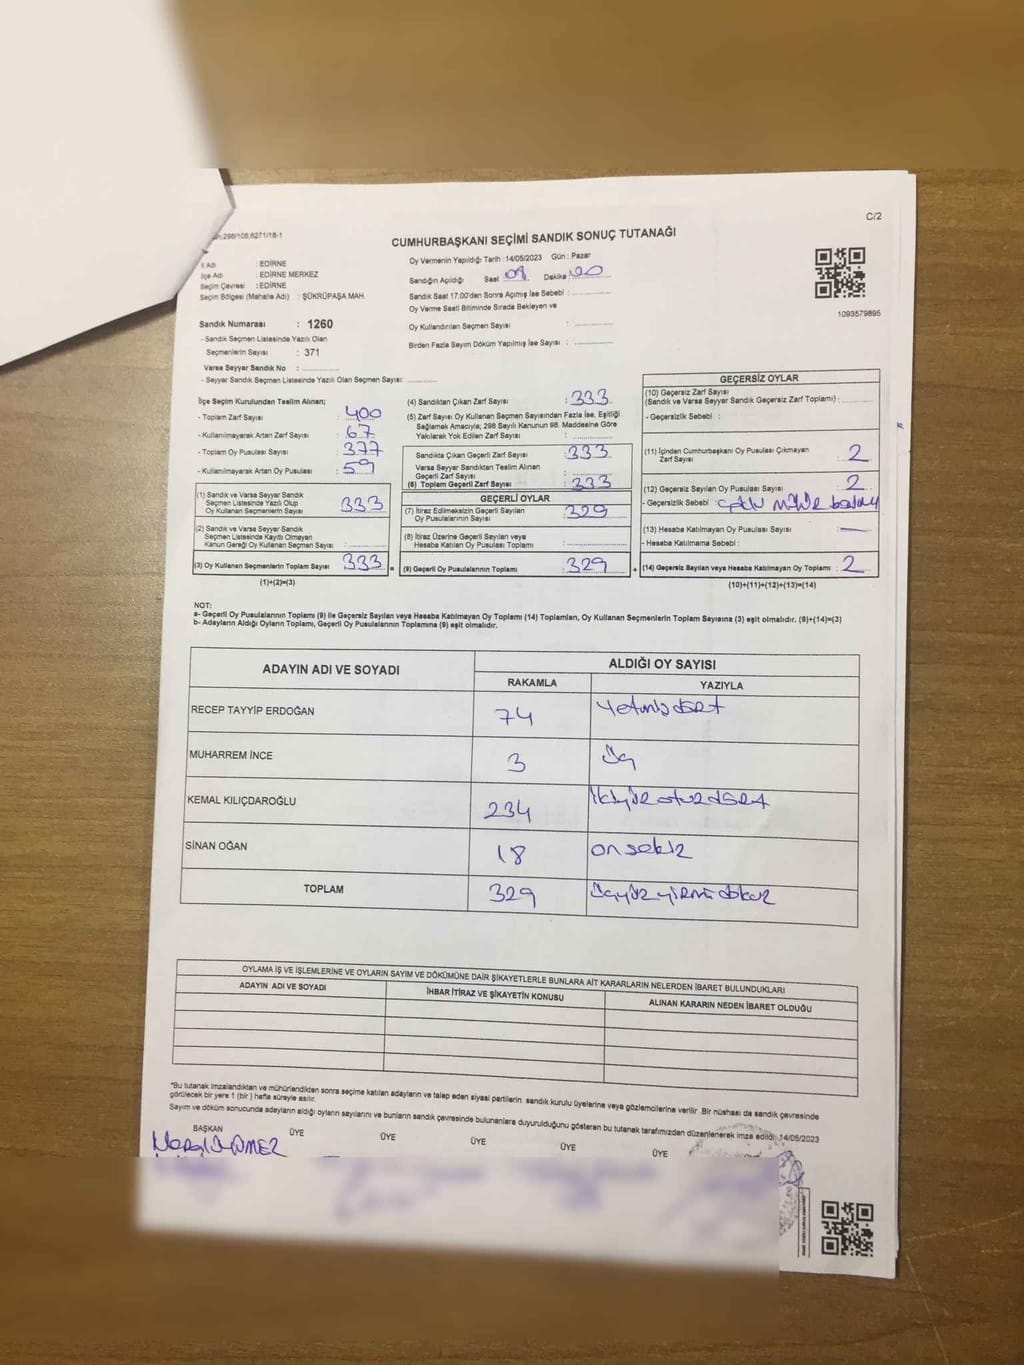 C/2
CUMHURBAŞKANI SEÇİMİ SANDIK SONUÇ TUTANAĞI
İl Adı : EDİRNE
İlçe Adı : EDİRNE MERKEZ
Seçim Çevresi : EDİRNE
Seçim Bölgesi (Mahalle Adı) : ŞÜKRÜPAŞA MAH.
Oy Vermenin Yapıldığı Tarih : 14/05/2023 Gün : Pazar
Sandığın Açıldığı Saat 08 Dakika 00
Sandık Saat 17.00'den Sonra Açımış İse Sebebi :
Oy Verme Saati Bitiminde Sırada Bekleyen ve
Oy Kullandırılan Seçmen Sayısı :
Birden Fazla Sayım Döküm Yapılmış İse Sayısı :
1093579895
Sandık Numarası : 1260
- Sandık Seçmen Listesinde Yazılı Olan
Seçmenlerin Sayısı : 371
Varsa Seyyar Sandık No :
- Seyyar Sandık Seçmen Listesinde Yazılı Olan Seçmen Sayısı:
İlçe Seçim Kurulundan Teslim Alınan;
- Toplam Zarf Sayısı : 400
- Kullanılmayarak Artan Zarf Sayısı : 67
- Toplam Oy Pusulası Sayısı : 377
- Kullanılmayarak Artan Oy Pusulası : 59
(1) Sandık ve Varsa Seyyar Sandık
Seçmen Listesinde Yazılı Olup
Oy Kullanan Seçmenlerin Sayısı : 333
(2) Sandık ve Varsa Seyyar Sandık
Seçmen Listesinde Kayıtlı Olmayan
Kanun Gereği Oy Kullanan Seçmen Sayısı :
(3) Oy Kullanan Seçmenlerin Toplam Sayısı : 333 =
(1)+(2)=(3)
(4) Sandıktan Çıkan Zarf Sayısı : 333
(5) Zarf Sayısı Oy Kullanan Seçmen Sayısından Fazla İse, Eşitliği
Sağlamak Amacıyla; 298 Sayılı Kanunun 98. Maddesine Göre
Yakılarak Yok Edilen Zarf Sayısı :
Sandıkta Çıkan Geçerli Zarf Sayısı : 333
Varsa Seyyar Sandıktan Teslim Alınan
Geçerli Zarf Sayısı :
(6) Toplam Geçerli Zarf Sayısı : 333
GEÇERLİ OYLAR
(7) İtiraz Edilmeksizin Geçerli Sayılan
Oy Pusulalarının Sayısı : 329
(8) İtiraz Üzerine Geçerli Sayılan veya
Hesaba Katılan Oy Pusulası Toplamı :
(9) Geçerli Oy Pusulalarının Toplamı : 329 +
GEÇERSİZ OYLAR
(10) Geçersiz Zarf Sayısı
(Sandık ve Varsa Seyyar Sandık Geçersiz Zarf Toplamı) :
- Geçersizlik Sebebi :
(11) İçinden Cumhurbaşkanı Oy Pusulası Çıkmayan
Zarf Sayısı : 2
(12) Geçersiz Sayılan Oy Pusulası Sayısı : 2
- Geçersizlik Sebebi :
(13) Hesaba Katılmayan Oy Pusulası Sayısı : —
- Hesaba Katılmama Sebebi :
(14) Geçersiz Sayılan veya Hesaba Katılmayan Oy Toplamı : 2
(10)+(11)+(12)+(13)=(14)
NOT:
a- Geçerli Oy Pusulalarının Toplamı (9) ile Geçersiz Sayılan veya Hesaba Katılmayan Oy Toplamı (14) Toplamları, Oy Kullanan Seçmenlerin Toplam Sayısına (3) eşit olmalıdır. (9)+(14)=(3)
b- Adayların Aldığı Oyların Toplamı, Geçerli Oy Pusulalarının Toplamına (9) eşit olmalıdır.
ADAYIN ADI VE SOYADI ALDIĞI OY SAYISI
RAKAMLA YAZIYLA
RECEP TAYYİP ERDOĞAN 74 Yetmişdört
MUHARREM İNCE 3 üç
KEMAL KILIÇDAROĞLU 234 ikiyüzotuzdört
SİNAN OĞAN 18 onsekiz
TOPLAM 329 üçyüzyirmidokuz
OYLAMA İŞ VE İŞLEMLERİNE VE OYLARIN SAYIM VE DÖKÜMÜNE DAİR ŞİKAYETLERLE BUNLARA AİT KARARLARIN NELERDEN İBARET BULUNDUKLARI
ADAYIN ADI VE SOYADI İHBAR İTİRAZ VE ŞİKAYETİN KONUSU ALINAN KARARIN NEDEN İBARET OLDUĞU
*Bu tutanak imzalandıktan ve mühürlendikten sonra seçime katılan adayların ve talep eden siyasi partilerin sandık kurulu üyelerine veya gözlemcilerine verilir. Bir nüshası da sandık çevresinde
görülecek bir yere 1 (bir) hafta süreyle asılır.
Sayım ve döküm sonucunda adayların aldığı oyların sayılarını ve bunların sandık çevresinde bulunanlara duyurulduğunu gösteren bu tutanak tarafımızdan düzenlenerek imza edildi. 14/05/2023
BAŞKAN ÜYE ÜYE ÜYE ÜYE ÜYE